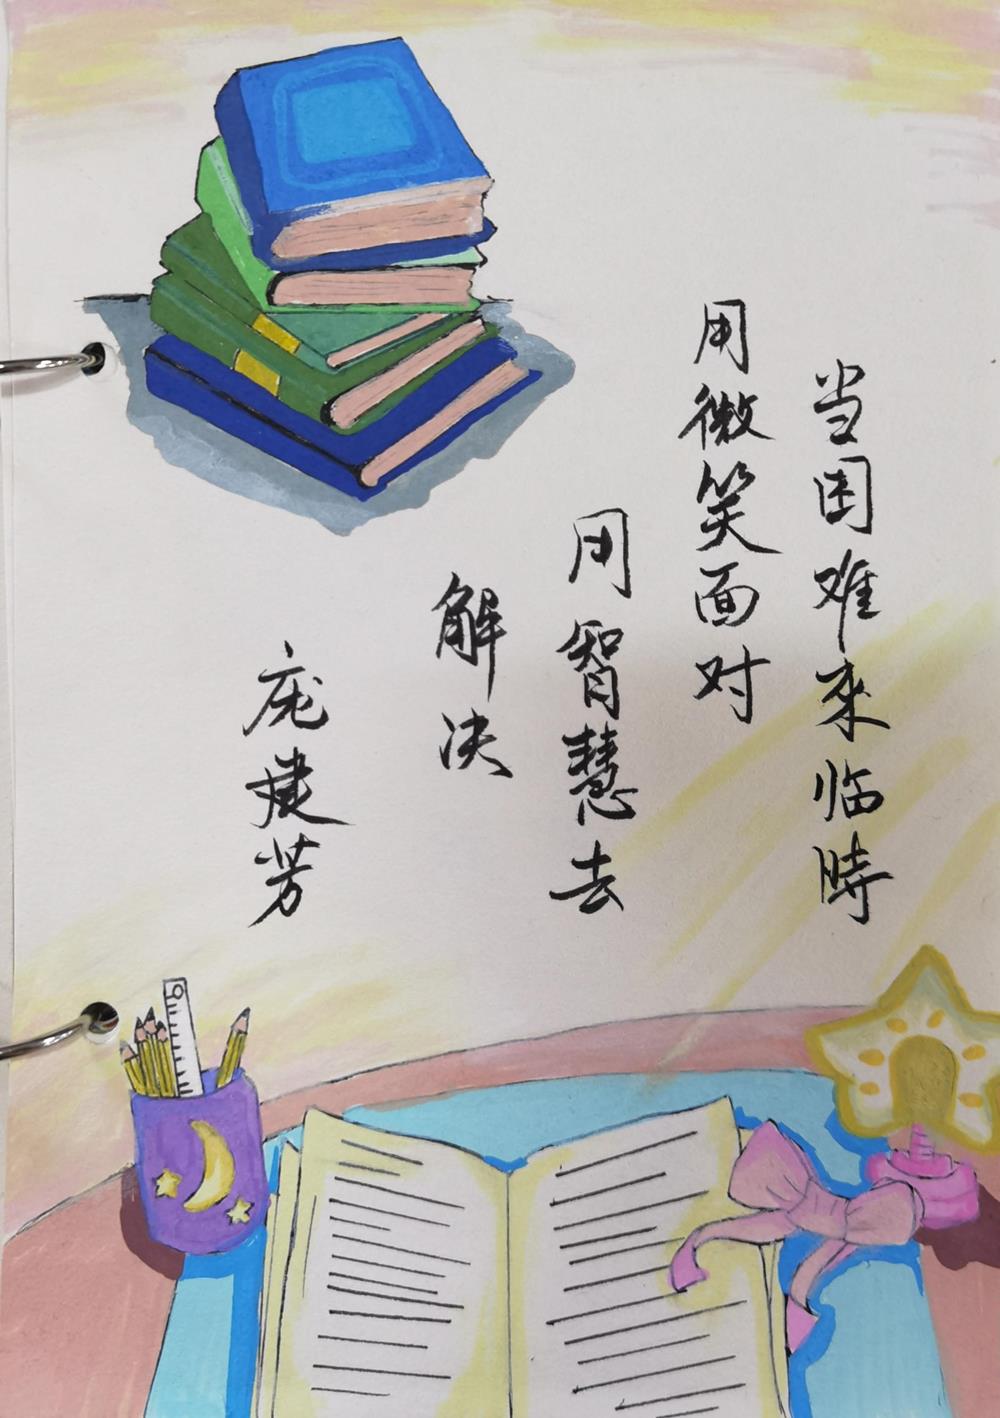 当困难来临時
用微笑面对
用智慧去
解决
庞建芳